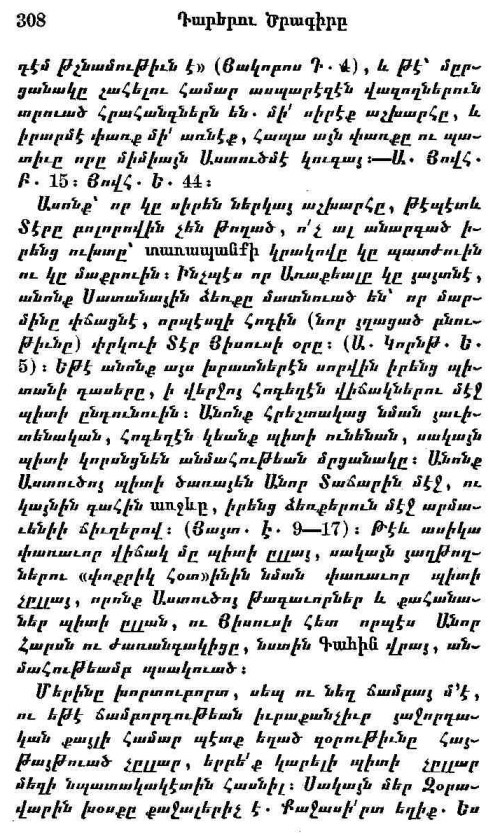 308 Դարերու Ծրագիրը
ղէմ թշնամութիւն է» (Յակորոս Դ. 4), և թէ՝ մըր-
ցանակը շահելու համար ասպարէզէն վազողներուն
տրուած հրահանգներն են. մի՛ սիրէք աշխարհը, և
իրարմէ փառք մի՛ առնէք, հապա այն փառքը ու պա-
տիւը որը միմիայն Աստուծմէ կուգայ:—Ա. Յովհ.
Բ. 15: Յովհ. Ե. 44:
Ասոնք՝ որ կը սիրեն ներկայ աշխարհը, թէպէտև
Տէրը բոլորովին չեն թողած, ո՛չ ալ անարգած ի-
րենց ուխտը՝ տառապանքի կրակովը կը պատժուին
ու կը մաքրուին: Ինչպէս որ Առաքեալը կը յայտնէ,
անոնք Սատանային ձեռքը մատնուած են՝ որ մար-
մինը փճացնէ, որպէսզի Հոգին (նոր յղացած բնու-
թիւնը) փրկուի Տէր Յիսուսի օրը: (Ա. Կորնթ. Ե.
5): Եթէ անոնք այս խրատներէն սորվին իրենց պի-
տանի դասերը, ի վերջոյ Հոգեղէն վիճակներու մէջ
պիտի ընդունուին: Անոնք հրեշտակաց նման յաւի-
տենական, հոգեղէն կեանք պիտի ունենան, սակայն
պիտի կորսնցնեն անմահութեան մրցանակը: Անոնք
Աստուծոյ պիտի ծառայեն Անոր Տաճարին մէջ, ու
կայնին գահին առջևը, իրենց ձեռքերուն մէջ արմա-
ւենիի ճիւղերով: (Յայտ. Է. 9—17): Թէև ասիկա
փառաւոր վիճակ մը պիտի ըլլայ, սակայն յաղթող-
ներու «փոքրիկ հօտ»ինին նման փառաւոր պիտի
չըլլայ, որոնք Աստուծոյ թագաւորներ և քահանա-
ներ պիտի ըլլան, ու Յիսուսի հետ որպէս Անոր
Հարսն ու ժառանգակիցը, նստին Գահին վրայ, ան-
մահութեամբ պսակուած:
Մերինը խորտուբորտ, սեպ ու նեղ ճամբայ մ՚է,
ու եթէ ճամբորդութեան իւրաքանչիւր յաջորդա-
կան քայլի համար պէտք եղած զօրութիւնը հայ-
թայթուած չըլլար, երբե՛ք կարելի պիտի չըլլար
մեզի նպատակակէտին հասնիլ: Սակայն մեր Զօրա-
վարին խօսքը քաջալերիչ է. Քաջասի՛րտ եղիք. Ես